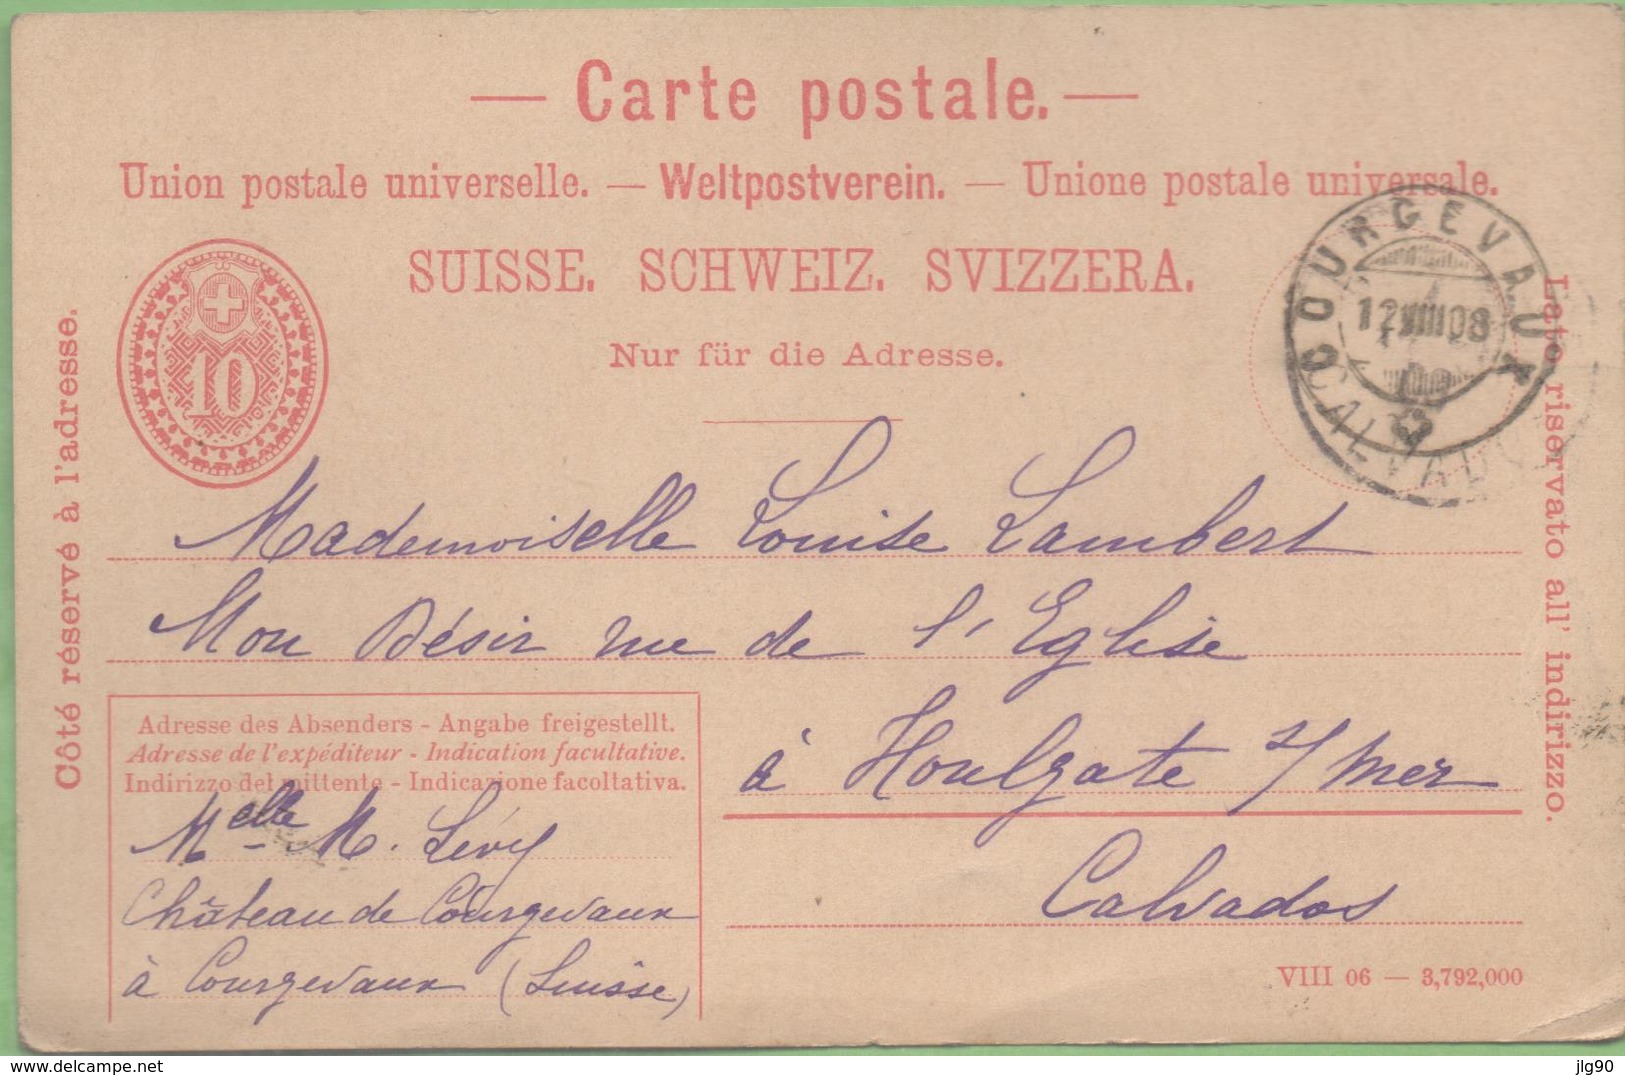 — Carte postale. —
Union postale universelle. — Weltpostverein. — Unione postale universale.
SUISSE. SCHWEIZ. SVIZZERA.
Nur für die Adresse.
10
Côté réservé à l'adresse.
Lato riservato all' indirizzo.
COURGEVAUX
12 VIII 08
CALVADOS
Mademoiselle Louise Lambert
Mon Désir rue de l'Eglise
à Houlgate s/mer
Calvados
Adresse des Absenders - Angabe freigestellt.
Adresse de l'expéditeur - Indication facultative.
Indirizzo del mittente - Indicazione facoltativa.
Melle M. Lévy
Château de Courgevaux
à Courgevaux (Suisse)
VIII 06 — 3,792,000
jlg90